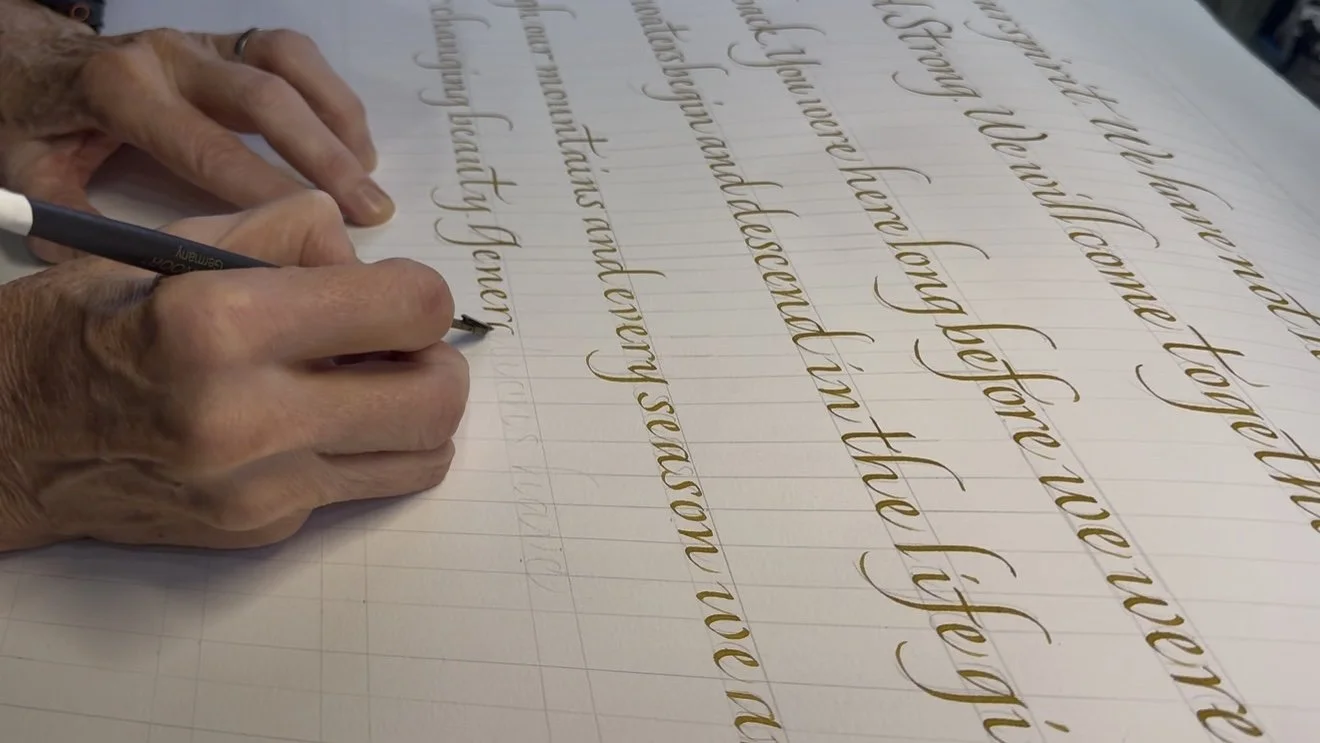 spirit. We have not
Strong. We will come togeth
You were here long before we were
begin and descend in the life gi
our mountains and every season we a
changing beauty. Gener
Germany